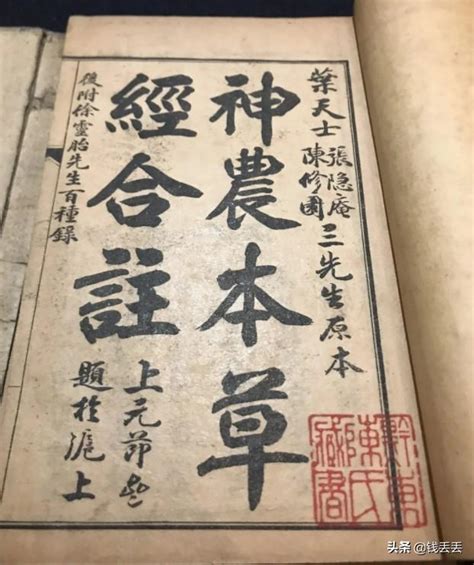 葉天士
張隐庵
陳修園
三先生原本
神農本草
經合註
上元節
題於滬上
後附徐靈胎先生百種錄
黔東
陳氏
藏書
头条 @钱丢丢